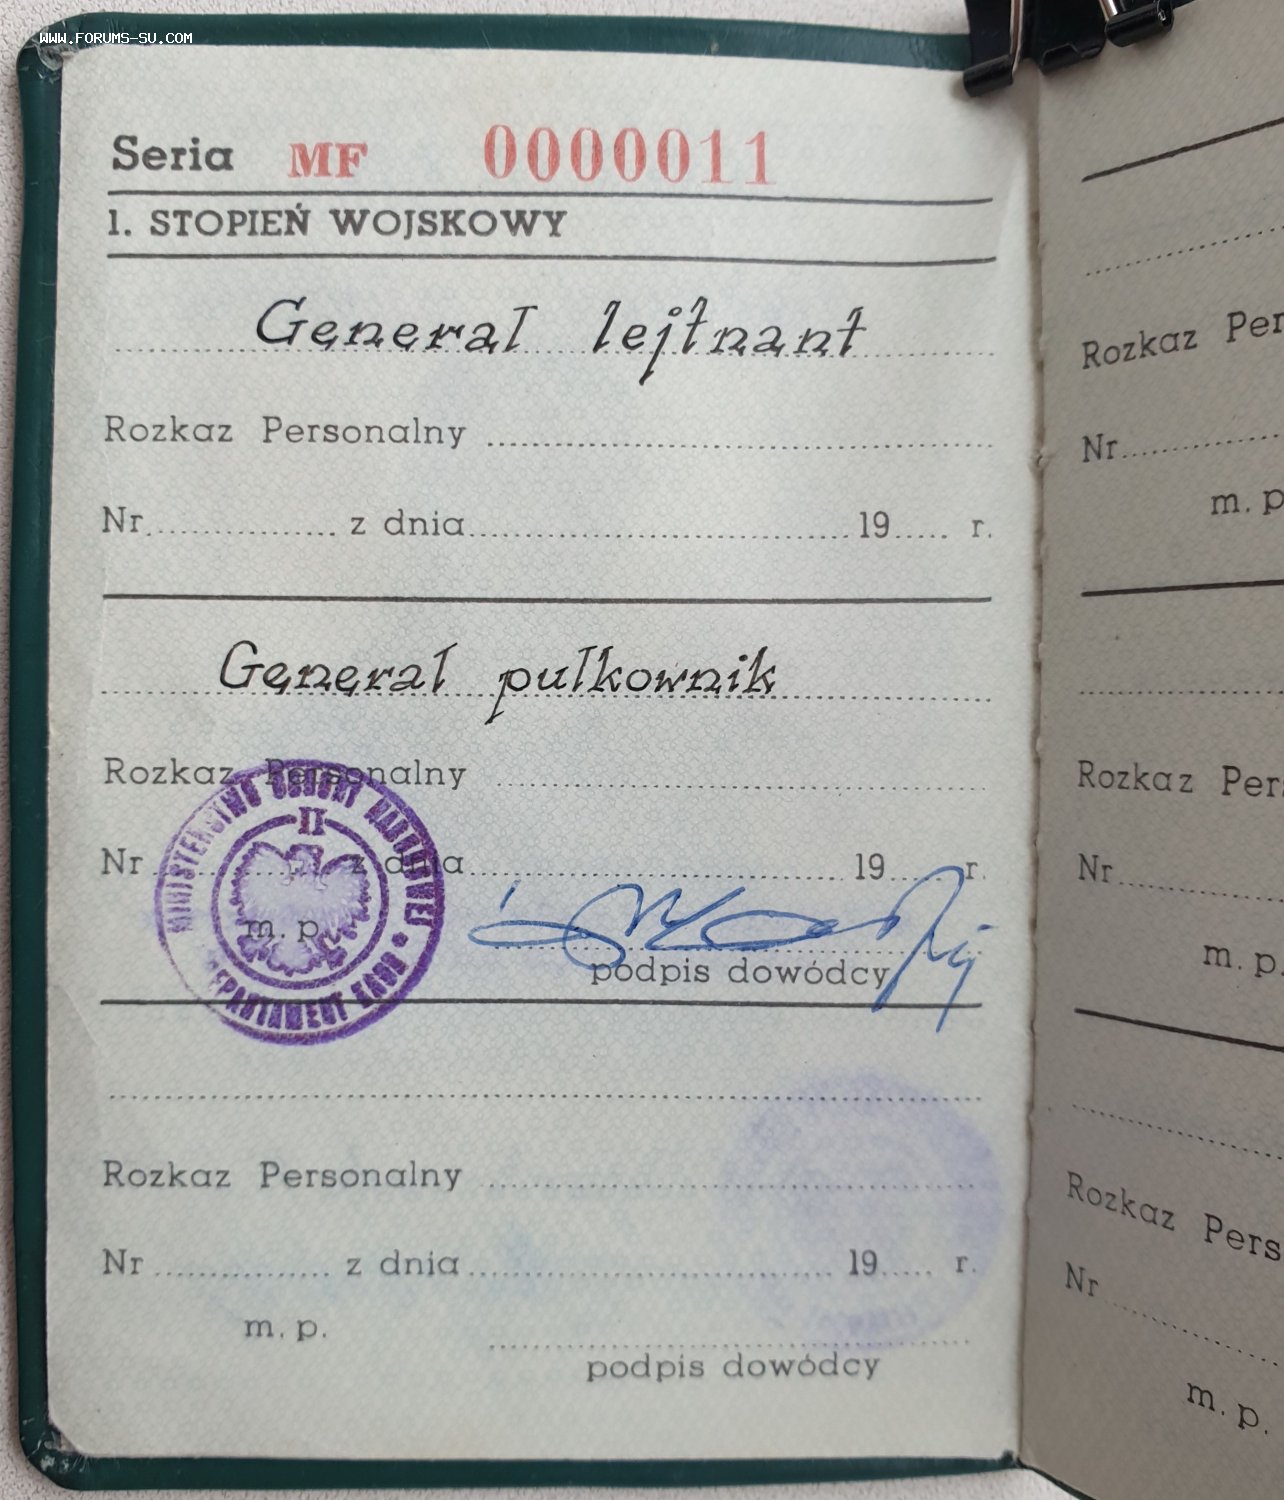 WWW.FORUMS-SU.COM
Seria MF 0000011
1. STOPIEŃ WOJSKOWY
Generał lejtnant
Rozkaz Personalny
Nr. z dnia 19 r.
Generał pułkownik
Rozkaz Personalny
Nr z dnia 19 r.
m. p.
podpis dowódcy
MINISTERSTWO OBRONY NARODOWEJ
II
DEPARTAMENT KADR
Rozkaz Personalny
Nr z dnia 19 r.
m. p.
podpis dowódcy
Rozkaz Per
Nr
m. p
Rozkaz Per
Nr
m. p.
Rozkaz Pers
Nr
m. p.